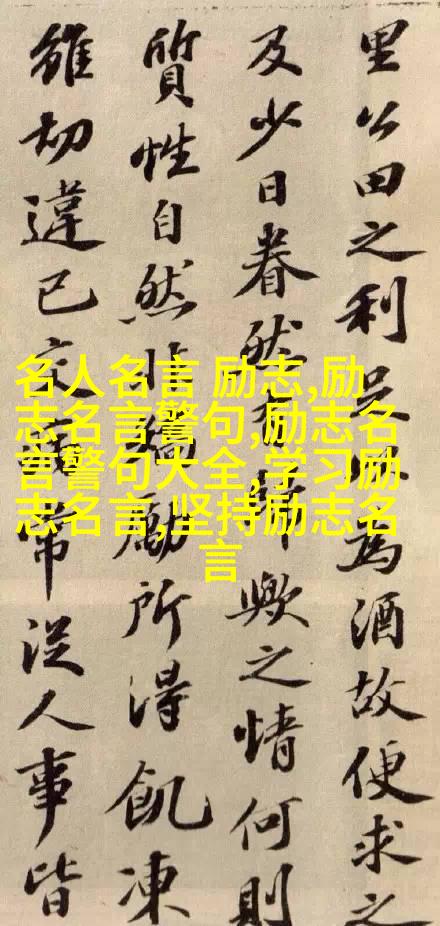 里公田之利足以為酒故便求之
及少日眷然有歟之情何則
質性自然非勵所得飢凍
雖切違己交常從人事皆
名人名言 励志,励
志名言警句,励志名
言警句大全,学习励
志名言,坚持励志名
言